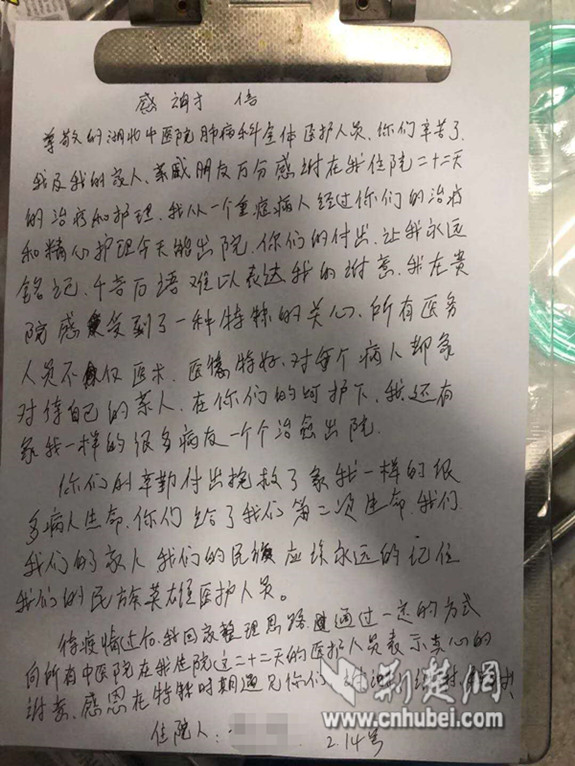 感谢信
尊敬的湖北中医院肺病科全体医护人员、你们辛苦了
我及我的家人、亲戚朋友万分感谢在我住院二十二天
的治疗和护理、我从一个重症病人经过你们的治疗
和精心护理今天能出院、你们的付出、让我永远
铭记、千言万语难以表达我的谢意、我在贵
院感受到了一种特殊的关心、所有医务
人员不仅医术、医德特好、对每个病人都象
对待自己的亲人、在你们的呵护下、我还有
象我一样的很多病友一个个治愈出院.
你们的辛勤付出挽救了象我一样的很
多病人生命、你们给了我们第二次生命、我们
我们的家人我们的民族应该永远的记住
我们的民族英雄医护人员。
待疫情过后、我回家整理思路通过一定的方式
向所有中医院在我住院这二十二天的医护人员表示衷心的
谢意、感恩在特殊时期遇见你们、谢谢
住院人: 2.14号
荆楚网
www.cnhubei.com